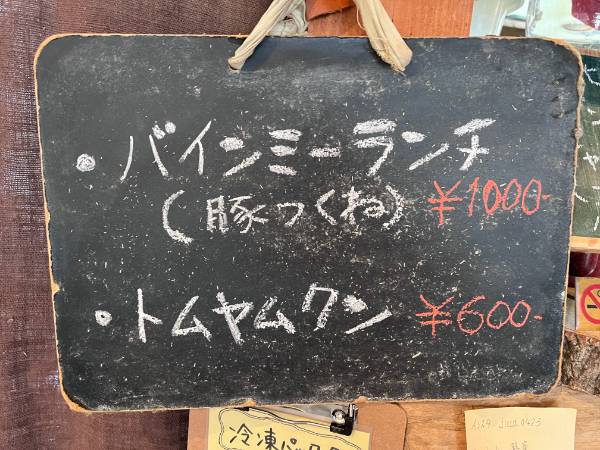 ・バインミーランチ
(豚つくね) ¥1000-
・トムヤムクン ¥600-
冷凍パック